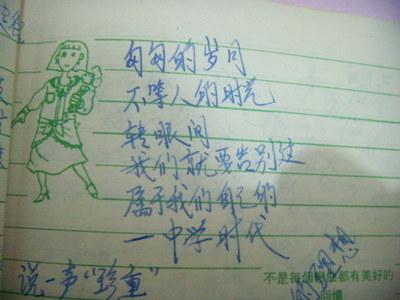 匆匆的岁月
不等人的时光
转眼间
我们就要告别这
属于我们自己的
一中学时代
说一声“珍重”
不是每個
都有美好的
回憶